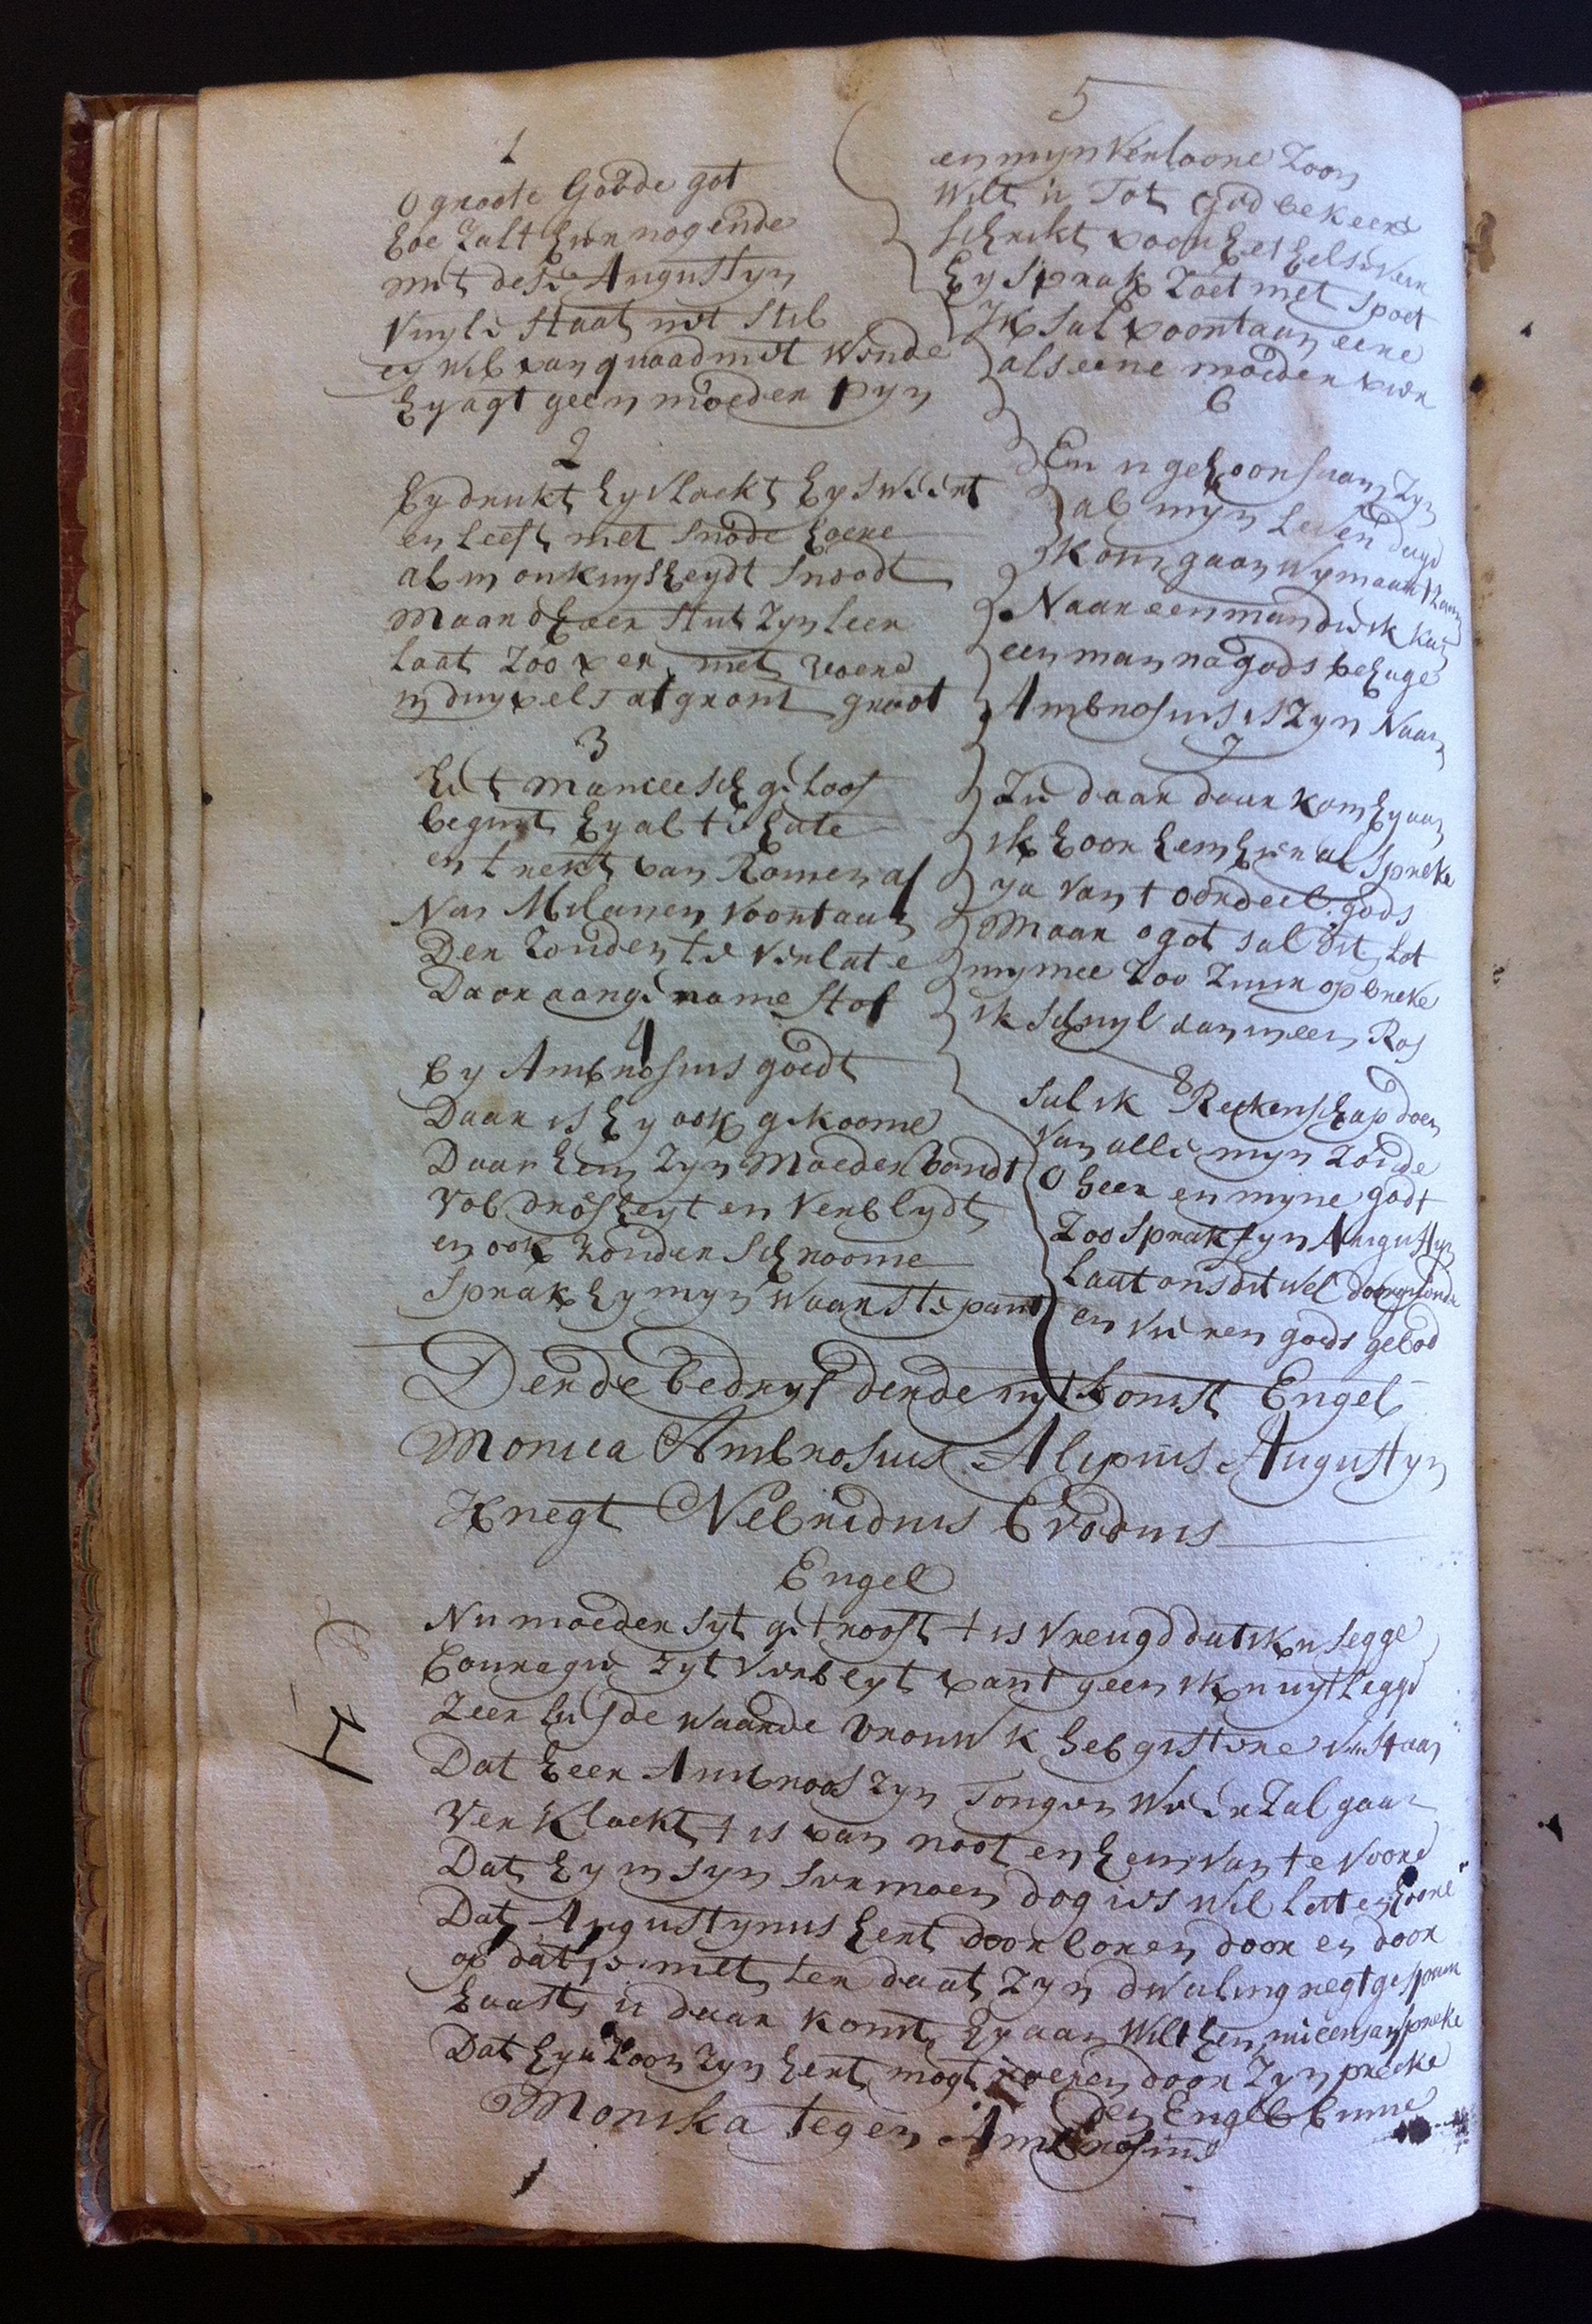 1
O groote Goode got
hoe zalt hier nog ende
met dese Augustyn
Vuyle staat niet stil
ey wil van quaad niet wende
hy agt geen moeder pyn
2
hy drukt hy vlackt hy swiert
en leeft met snode hoere
al in onkuysheydt snoodt
Maar dheer stut zyn leer
laat zoo ver niet voere
in duyvels afgront groot
3
het maniceesch geloof
begint hy al te hate
en trekt van Romen af
Na Milanen voortaan
Der zonden te verlate
Door aangename stof
4
by Ambrosius goedt
Daar is hy ook gekoome
Daar hem zyn Moeder vondt
Vol drosheyt en verblydt
en ook zonder schroome
Sprak hy myn waarste pant
5
en myn verloore zoon
Wilt u Tot god bekeere
schrikt voor het hels
hy sprak zoet met spoet
Ik sal voortaan eere
als eene moeder
6
En u gehoorsaam zyn
al myn leven
kom gaan wy maar
Naar een man die ik
een man na gods behage
Ambrosius is zyn Naam
7
Zie daar daar kom hy aan
ik hoor hem hier al spreke
ya van t oordeel gods
Maar o got sal dit lot
my mee zoo zuur opbreke
ik schuyl dan in een Ros
8
sal ik Reckenschap doen
Van alle myn zonde
O heer en myne godt
Zoo sprak fyn Augustyn
laat ons dit wel doorgronde
en vieren gods gebod
Derde bedryf derde uytkomst Engel
Monica Ambrosius Alipius Augustyn
Knegt Nebridius Evodius
Engel
Nu moeder syt getroost t is vreugd dat ik u segge
Couragie zyt verblyt want geen ik u uytlegge
Zeer liefde waarde vrouw k heb gistere verstaan
Dat heer Ambroos zyn Tongen weer zal gaan
Verklaekt t is van noot en hem van te voore
Dat hy in syn sermoen dog iets wil laten hoore
Dat Augustynus hert doorboren door en door
op dat met ter daat zyn dwaling regt
haast u daar komt hy aan wilt hem aanspreke
Dat hy u zoon zyn hert mogt roeren door zyn preeke
den Engel binne
Monika tegen Ambrosius